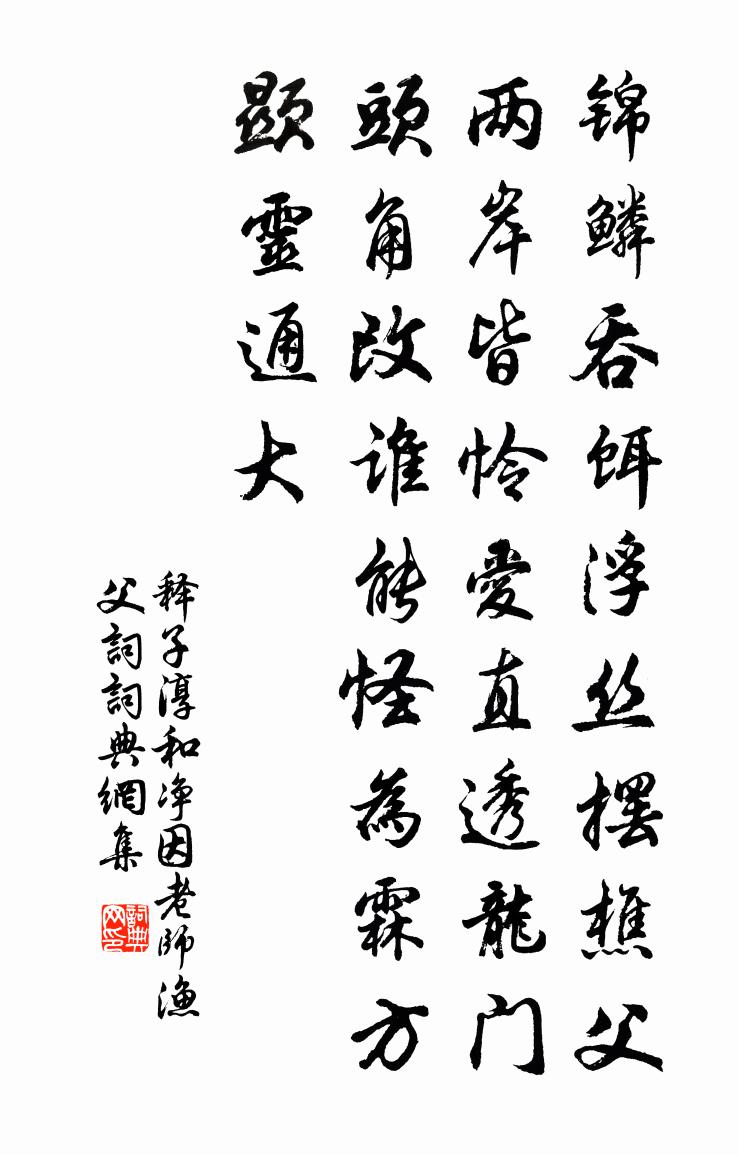 锦鳞吞饵浮丝摆樵父
两岸皆怜爱直透龍门
頭角改谁能怪為霖方
顯靈通大
释子淳和净因老師漁
父詞詞典網集
詞典网印